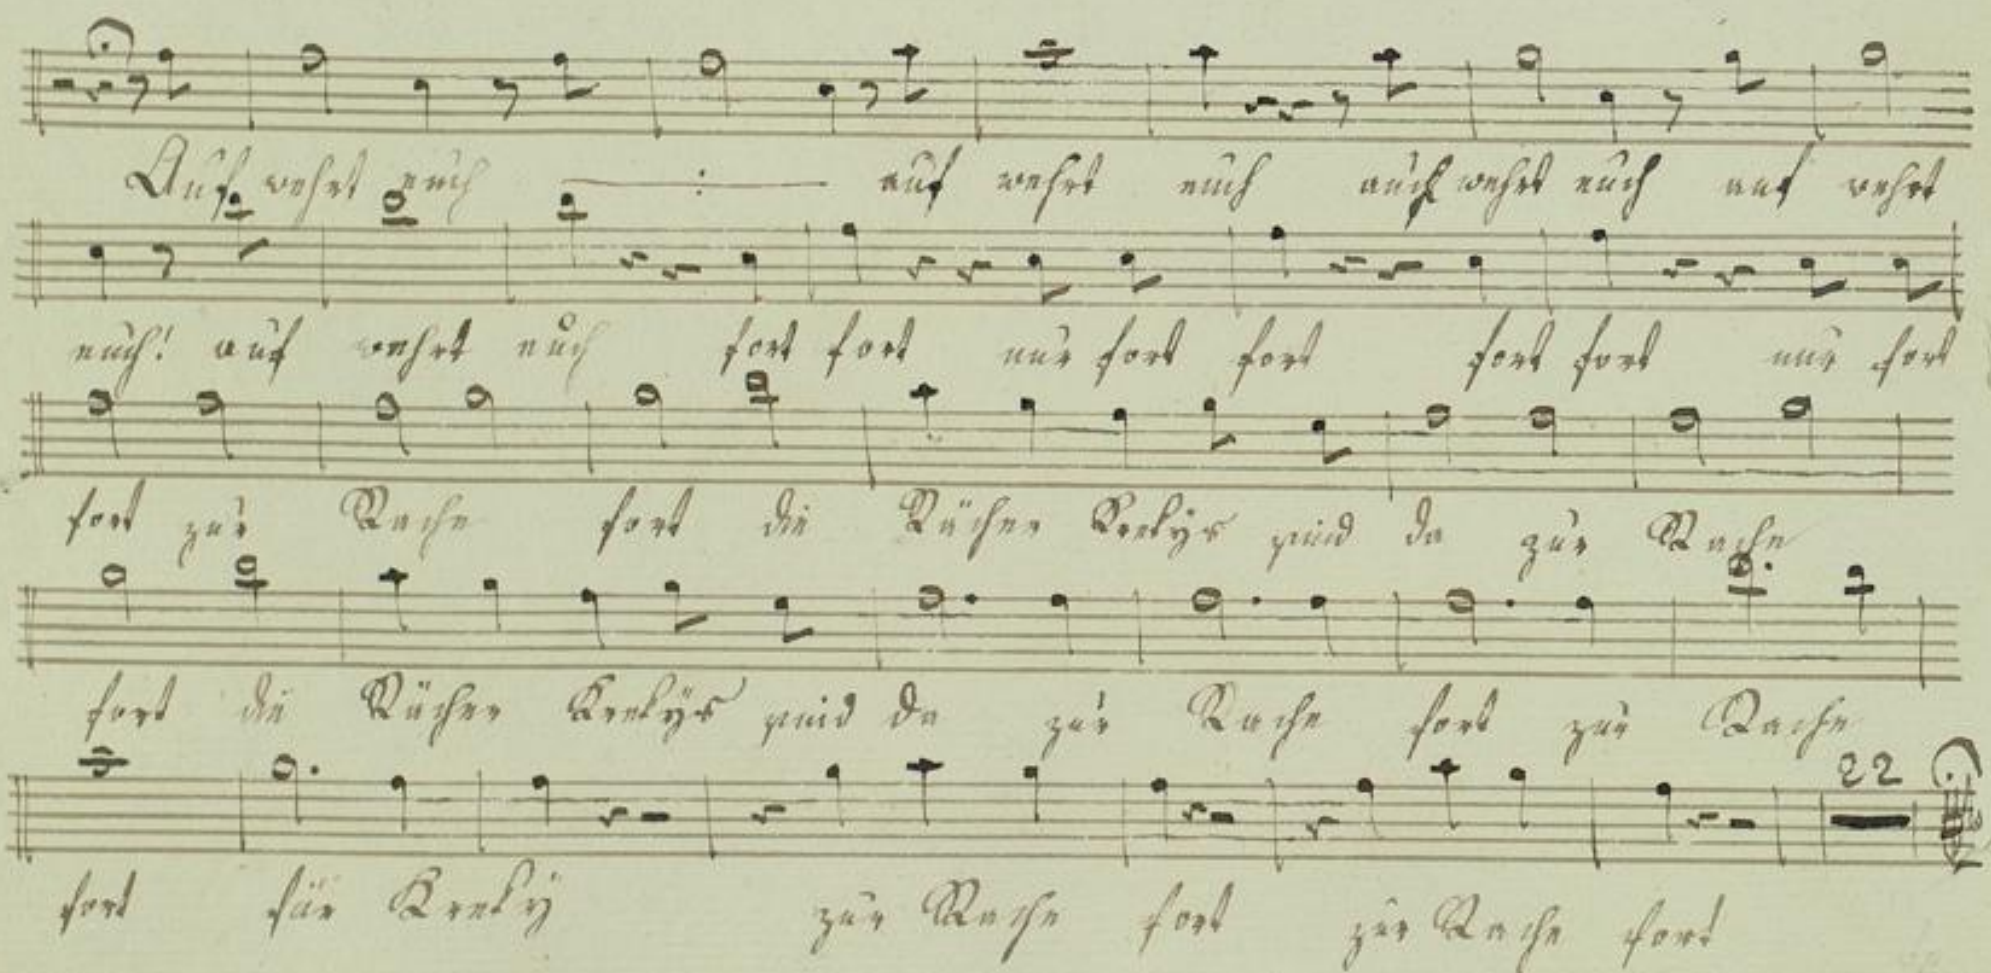 Auf wehrt euch —:— auf wehrt euch auch wehrt euch auf wehrt
euch! auf wehrt euch fort fort nur fort fort fort fort nur fort
fort zur Rache fort die Rächer sind da zur Rache
fort die Rächer sind da zur Rache fort zur Rache
22
fort für zur Rache fort zur Rache fort